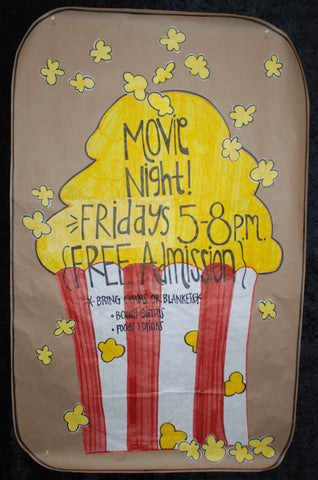 Movie
Night!
Fridays 5-8 p.m.
{FREE Admission}
* BRING OR BLANKETS *
• BOARD GAMES
• FOODS & DRINKS